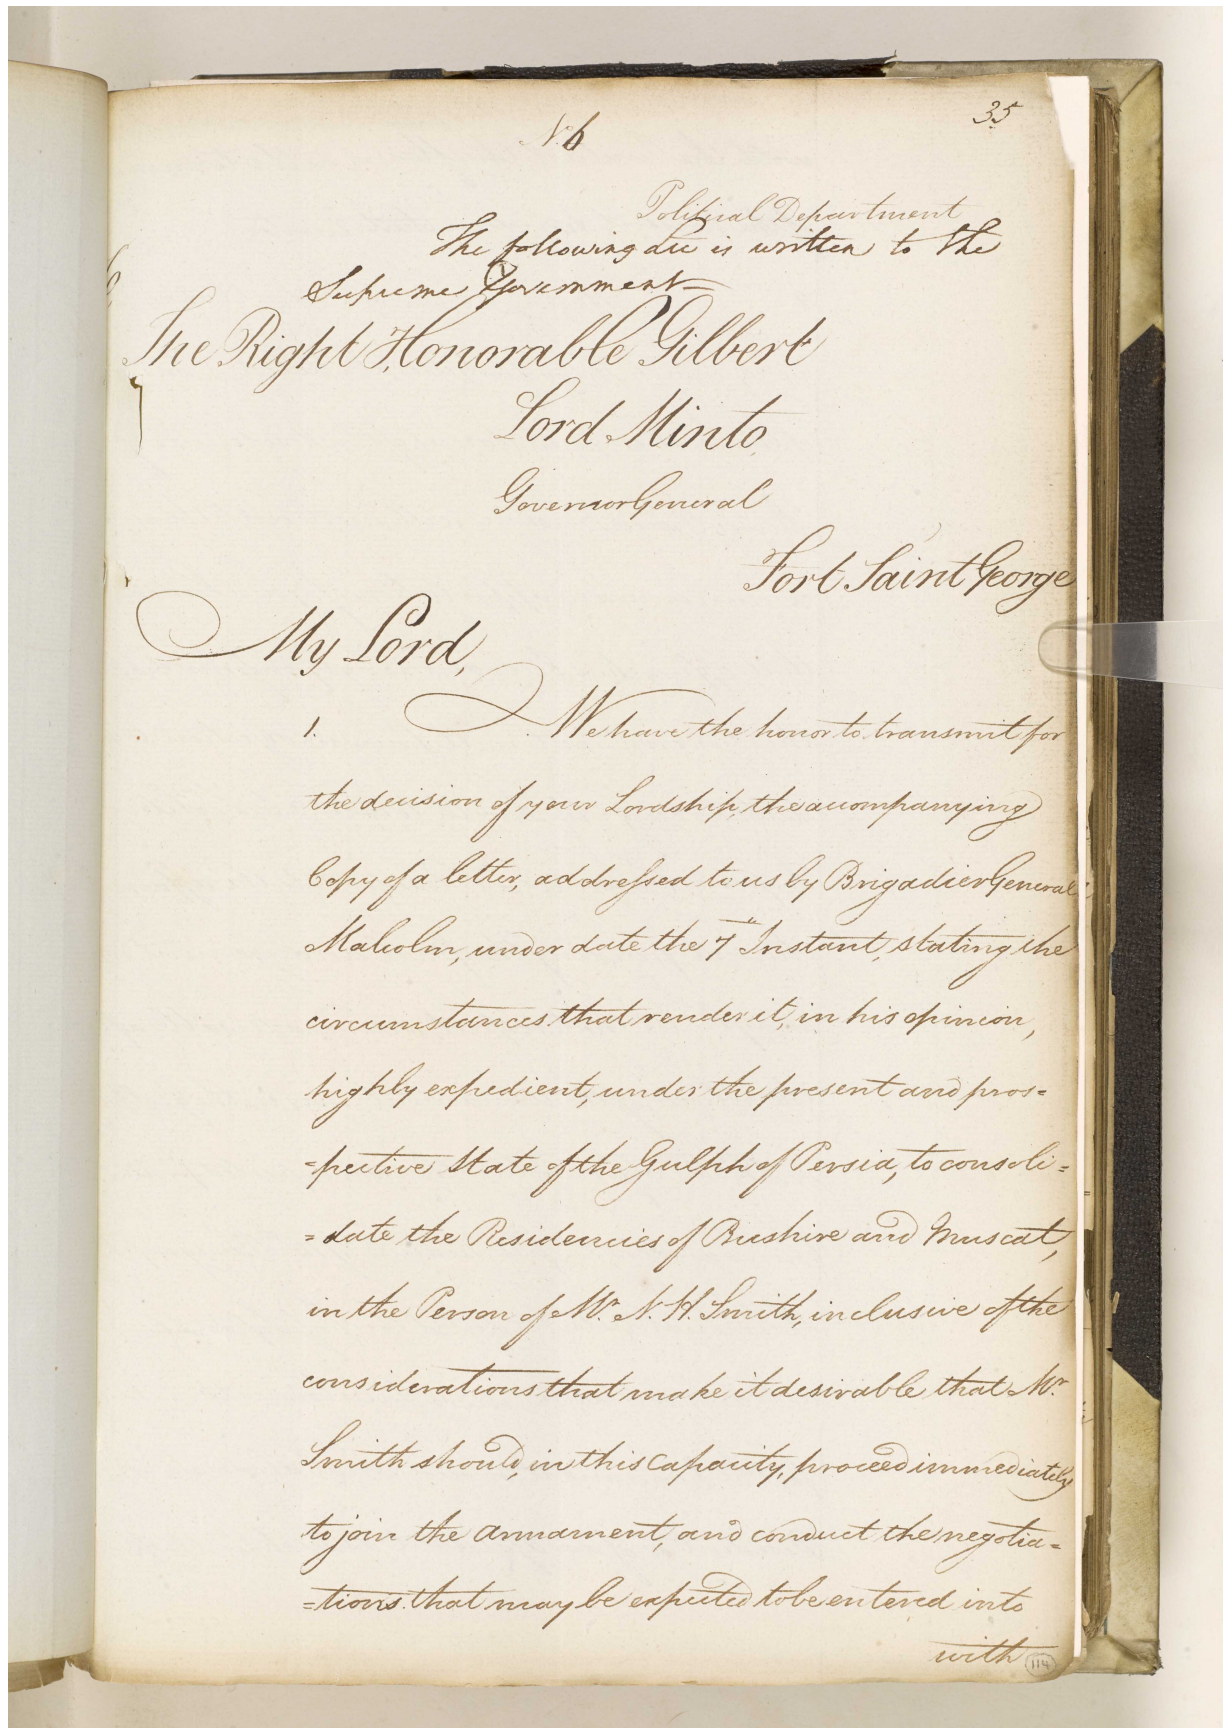 35
No. 6
Political Department
The following Lre is written to the
Supreme Government
The Right Honorable Gilbert
Lord Minto
Governor General
Fort Saint George
My Lord,
1. We have the honor to transmit for
the decision of your Lordship, the accompanying
Copy of a letter, addressed to us by Brigadier General
Malcolm, under date the 7th Instant, stating the
circumstances that render it, in his opinion,
highly expedient, under the present and pros=
=pective State of the Gulph of Persia, to consoli=
=date the Residencies of Bushire and Muscat,
in the Person of Mr. N. H. Smith, inclusive of the
considerations that make it desirable that Mr.
Smith should, in this Capacity, proceed immediately
to join the armament, and conduct the negotia=
=tions that may be expected to be entered into
with
114